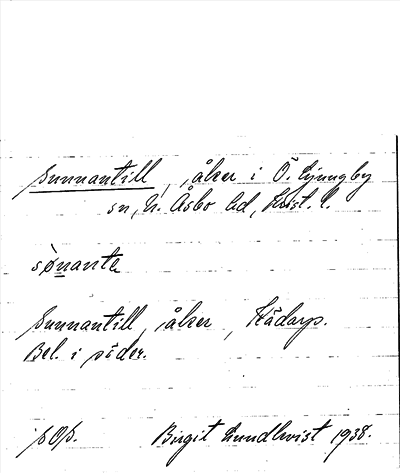 Sunnantill, åker i Ö. Ljungby
sn, N. Åsbo hd, Krist. l.
sønanta
Sunnantill, åker,
Bel. i söder.
Birgit Lundkvist 1938.